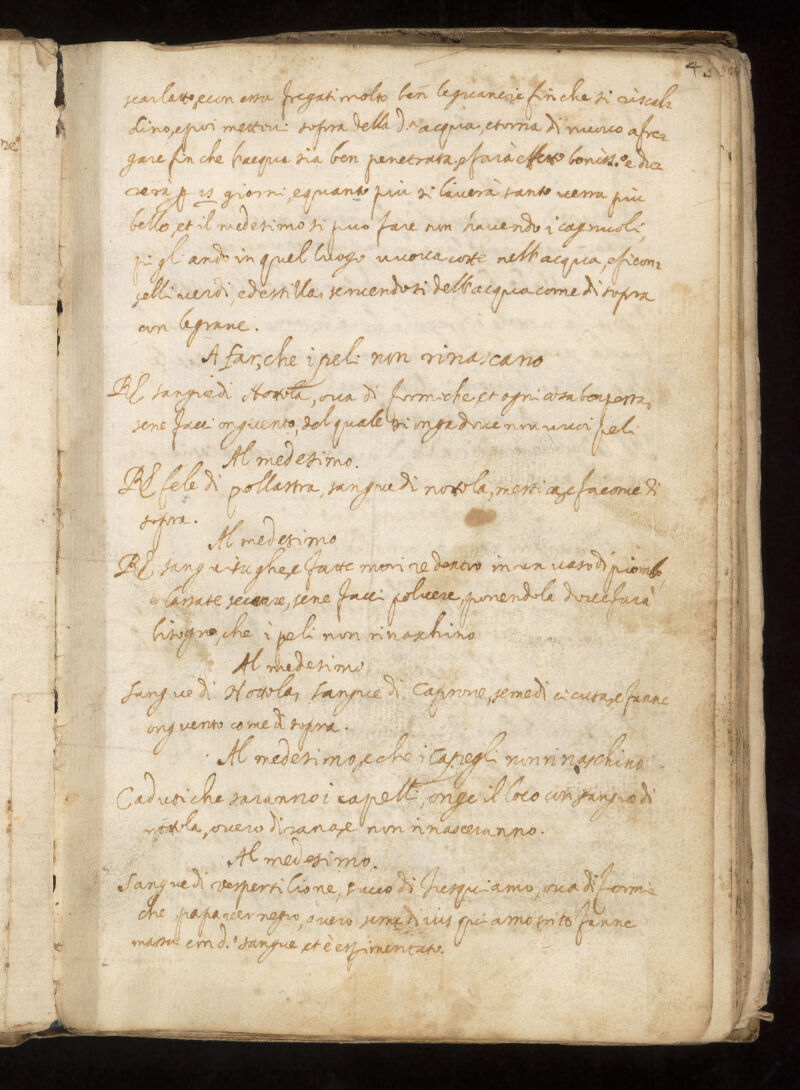 43
scarlatto, e con essa fregati molto ben le guancie finche si riscal=
dino, e poi mettivi sopra della d.a acqua, e torna di nuovo a fre=
gare fin che l'acqua sia ben penetrata, e farà effetto boniss.o e du=
rerà p 15 giorni, e quanto più si laverà tanto verra più
bello, et il medesimo si può fare non havendo i cagnuoli,
pigliando in quel luogo cotte nell'acqua, e ficon=
celli verdi, ed estilla, servendosi dell'acqua come di sopra
con le grane.
A far, che i peli non rinascano
R sangue di Nottola, ova di formiche, et ogni cosa ben pesta,
sene facci onguento, del quale si onga dove non vuoi peli
Al medesimo.
R fele di pollastra, sangue di nottola, mestica, e fa come di
sopra.
Al medesimo
R sanguisughe, e fatte morire dentro in un vaso di piombo,
e lassate seccare, sene facci polvere, ponendola dove sarà
bisogno, che i peli non rinaschino
Al medesimo
Sangue di Nottola, sangue di Caprone, seme di cicuta, e fanne
onguento come di sopra.
Al medesimo, e che i Capegli non rinaschino
Caduti che saranno i capelli, onge il loco con sangue di
nottola, overo di rana, e non rinasceranno.
Al medesimo.
Sangue di vespertilione, succo di Jusquiamo, ova di formi=
che papaver negro, overo seme di iusquiamo trito fanne
massa con d.o sangue, et è esperimentato.